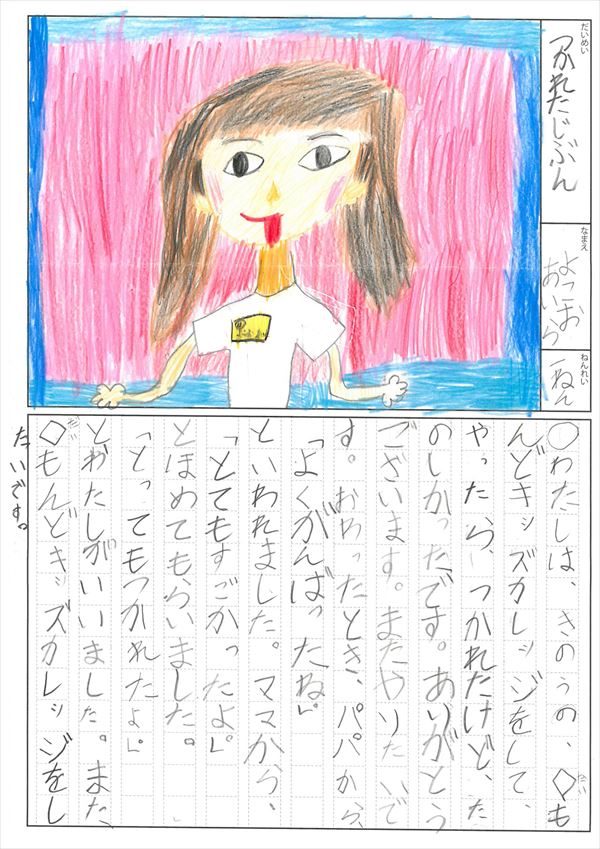 だいめい
つかれたじぶん
なまえ
よつお
あいら
ねんれい
一ねん
〇わたしは、きのうの、◇も
だい
んどキッズカレッジをして、
やったら、つかれたけど、た
のしかったです。ありがとう
ございます。またやりたいで
す。おわったとき、パパから、
「よくがんばったね。」
といわれました。ママから、
「とてもすごかったよ。」
とほめてもらいました。
「とってもつかれたよ。」
とわたしがいいました。また、
◇もんどキッズカレッジをし
だい
たいです。